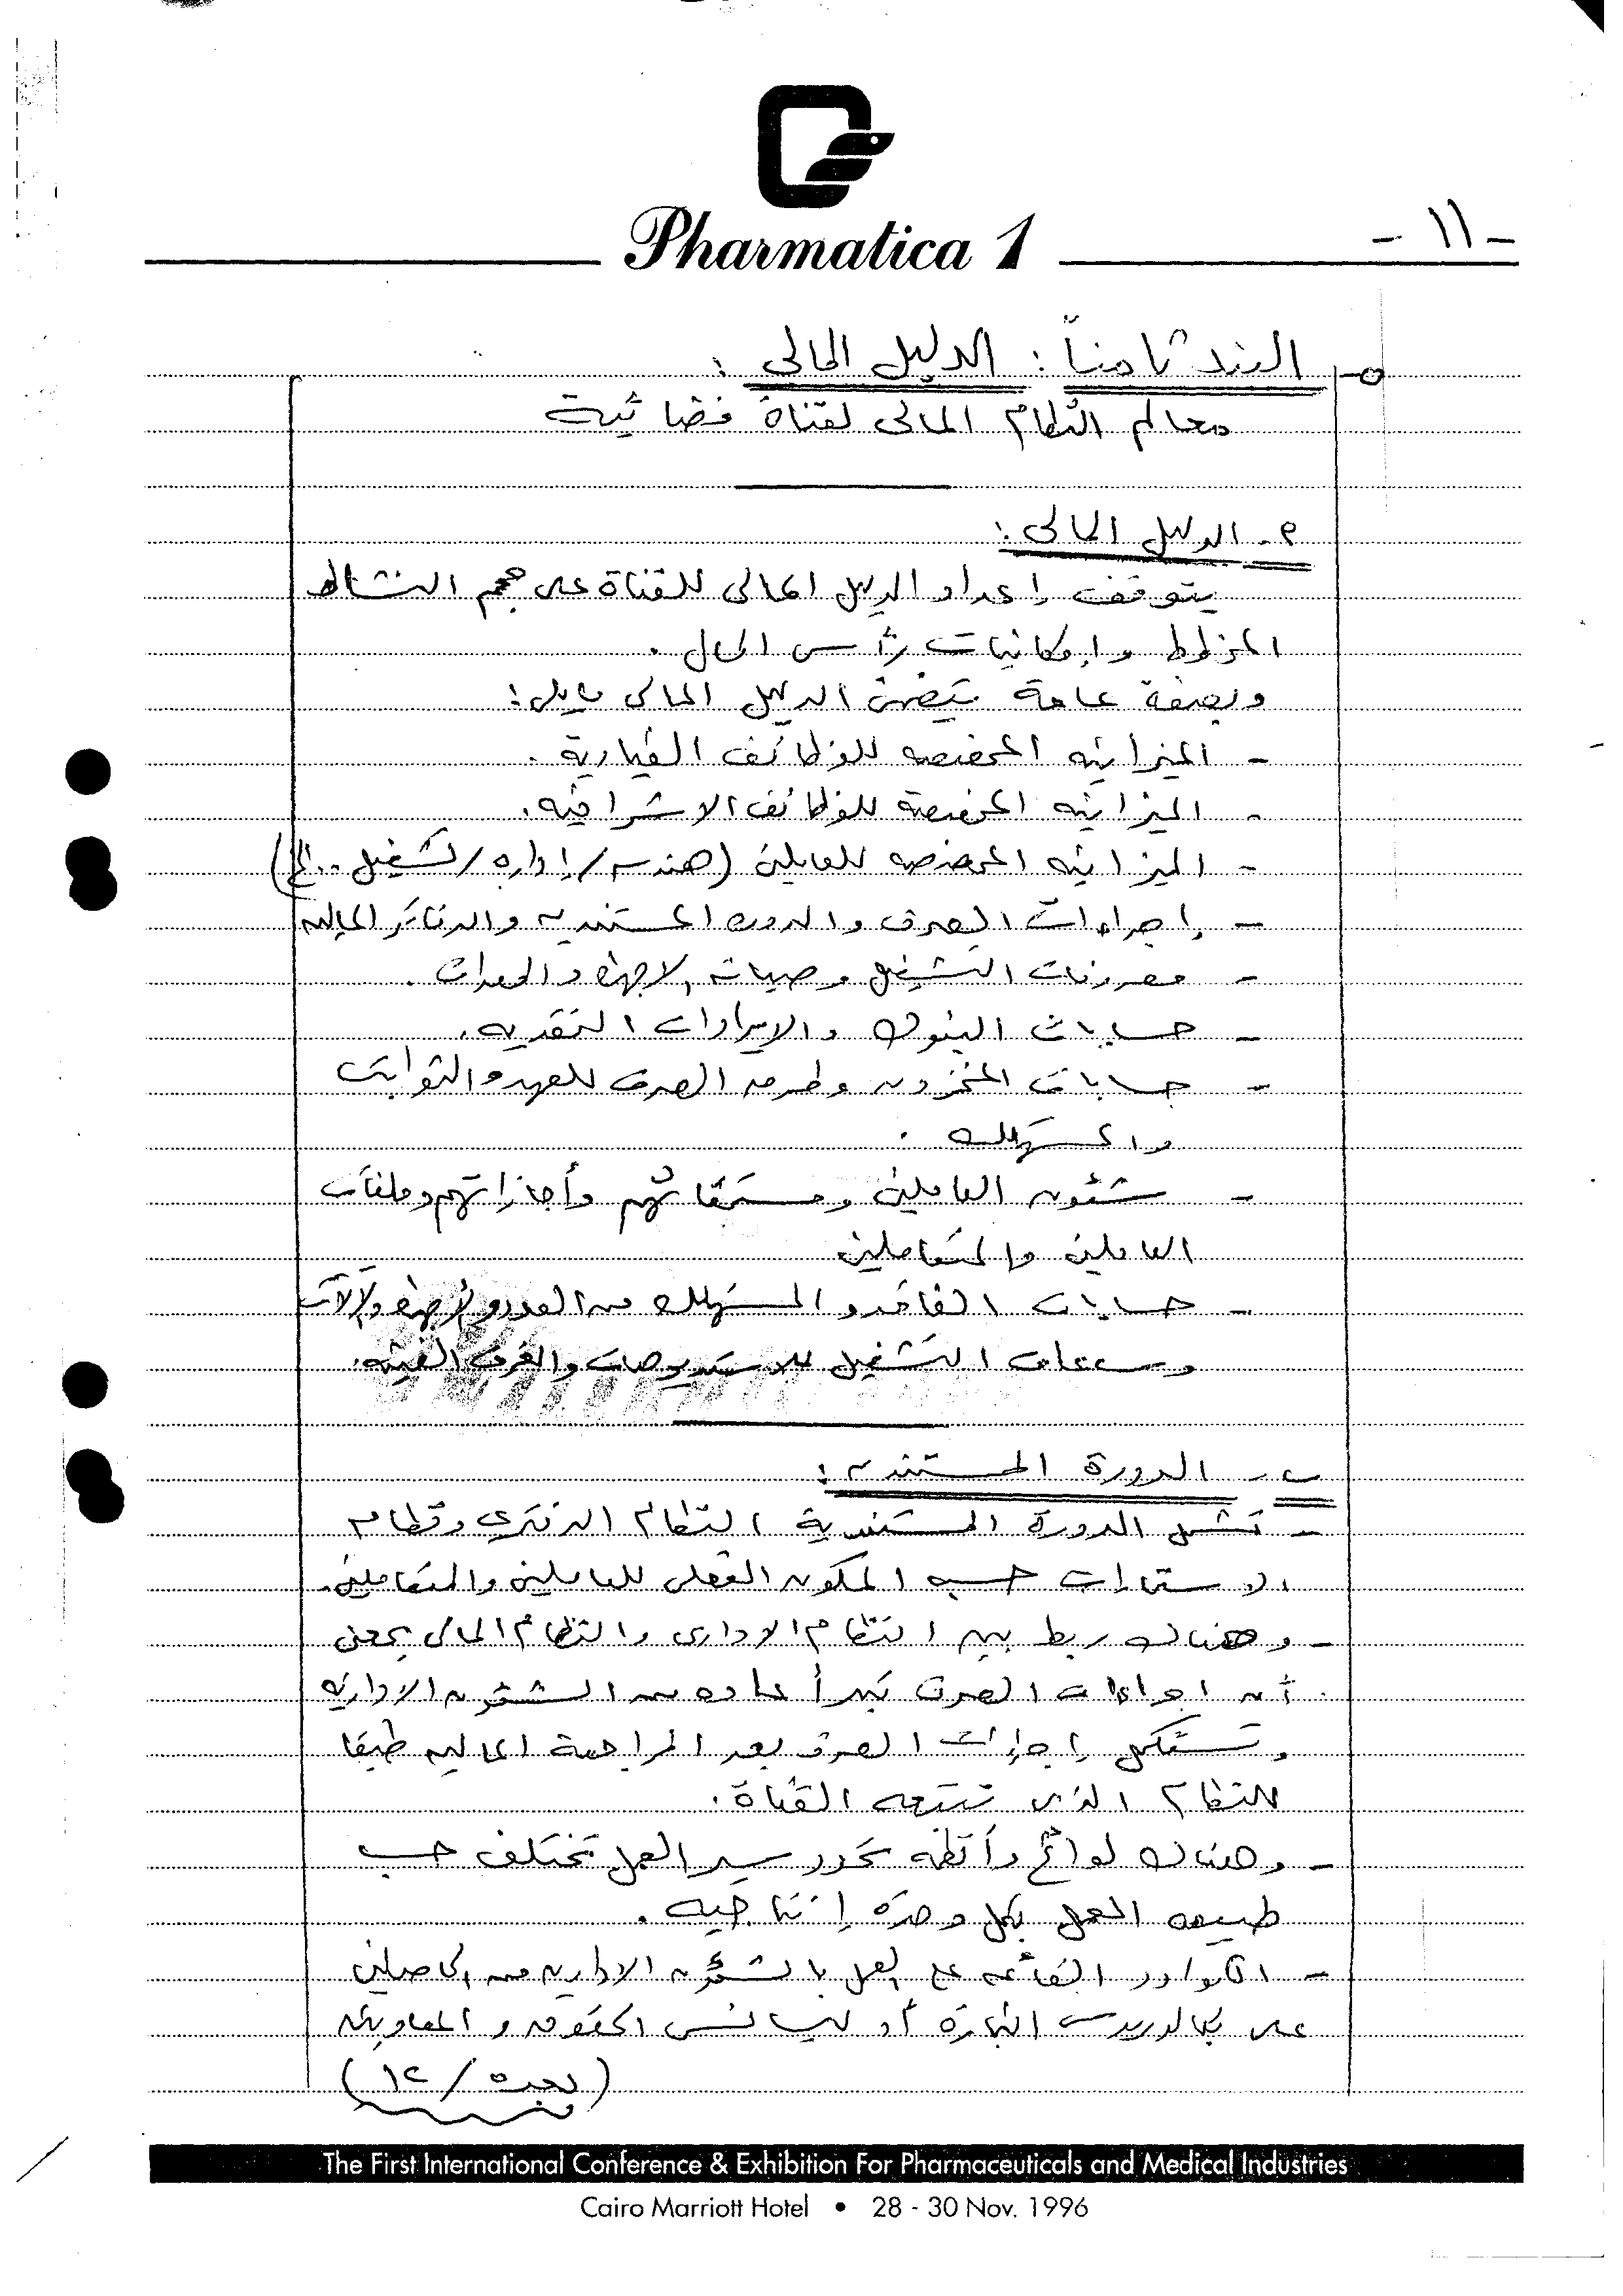 Pharmatica 1
- ١١ -
البند ثامناً : الدليل المالى :
معالم النظام المالى لقناة فضائية
٢- الدليل المالى :
يتوقف إعداد الدليل المالى للقناة على حجم النشاط
المخطط وإمكانيات رأس المال .
وبصفة عامة يتضمن الدليل المالى مايلى :
- الميزانيه المخصصه للوظائف القيادية .
- الميزانيه المخصصة للوظائف الاشرافيه .
- الميزانيه المخصصه للعاملين (هندسه / إداره / تشغيل .. الخ)
- إجراءات الصرف والدوره المستنديه والدفاتر الماليه
- مصروفات التشغيل وصيانه الاجهزه والمعدات .
- حسابات البنوك والايرادات النقديه .
- حسابات المخزون وطرق الصرف للعهد والثوابت
والمستهلكه .
- شئون العاملين ومستحقاتهم وأجازاتهم وملفات
العاملين والمتعاملين
- حسابات الفاقد والمستهلك من العدد والاجهزه والآلات
وساعات التشغيل للاستديوهات والغرف الفنيه .
ب - الدورة المستنديه :
- تشمل الدورة المستندية النظام الدفترى ونظام
الاستمارات حسب المكون الفعلى للعاملين والمتعاملين .
- وهناك ربط بين النظام الادارى والنظام المالى بمعنى
أن اجراءات الصرف تبدأ عاده من الشئون الاداريه
وتستكمل إجراءات الصرف بعد المراجعة الماليه طبقا
للنظام الذى تتبعه القناة .
- وهناك لوائح وأنظمه تحدد سير العمل تختلف حسب
طبيعه العمل بكل وحده إنتاجيه .
- الكوادر القائمه على العمل بالشئون الاداريه من الحاصلين
على بكالوريوس التجارة أو ليسانس الحقوق والمعاونه
(بعده / ١٢)
The First International Conference & Exhibition For Pharmaceuticals and Medical Industries
Cairo Marriott Hotel • 28 - 30 Nov. 1996